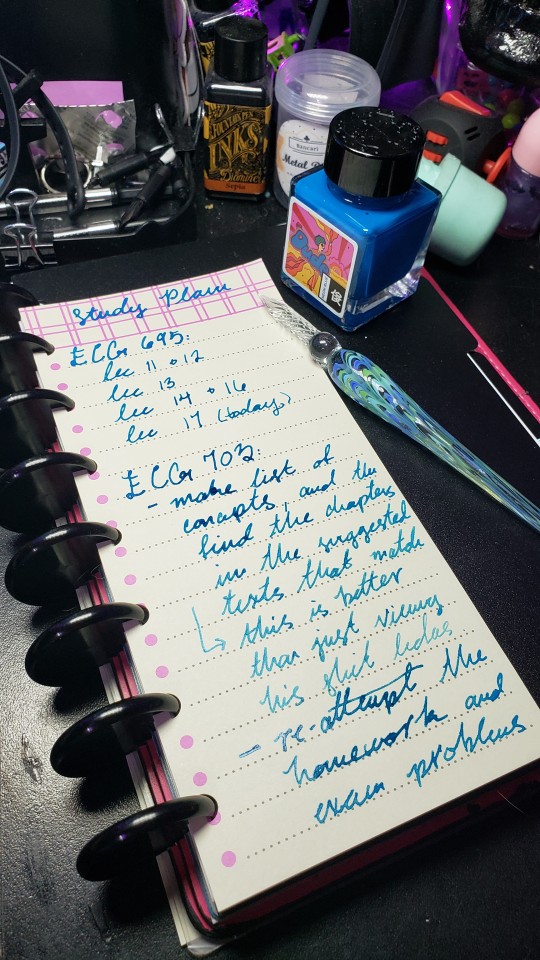 FOUNTAIN PEN
INKS
Diamine
Sepia
Metal
Study Plan
ECGr 695:
lec 11 + 12
lec 13
lec 14 + 16
lec 17 (today)
ECGr 703
- make list of
concepts, and then
find the chapters
in the suggested
texts that match
↳ this is better
than just viewing
his shit
- re-attempt the
homework and
exam problems